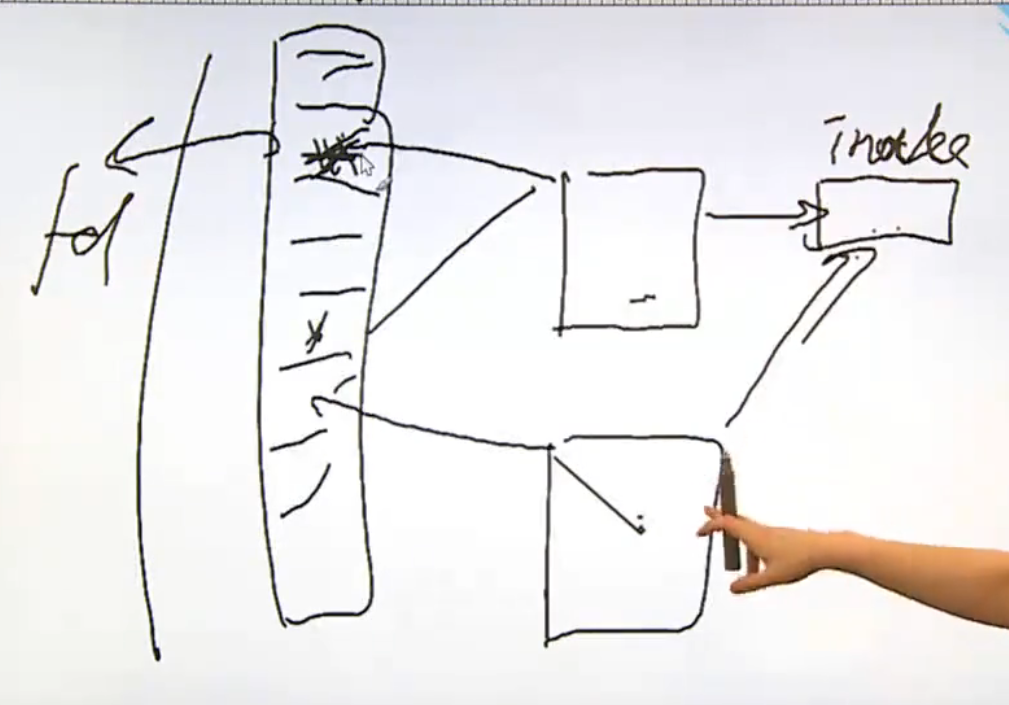 fd
inode